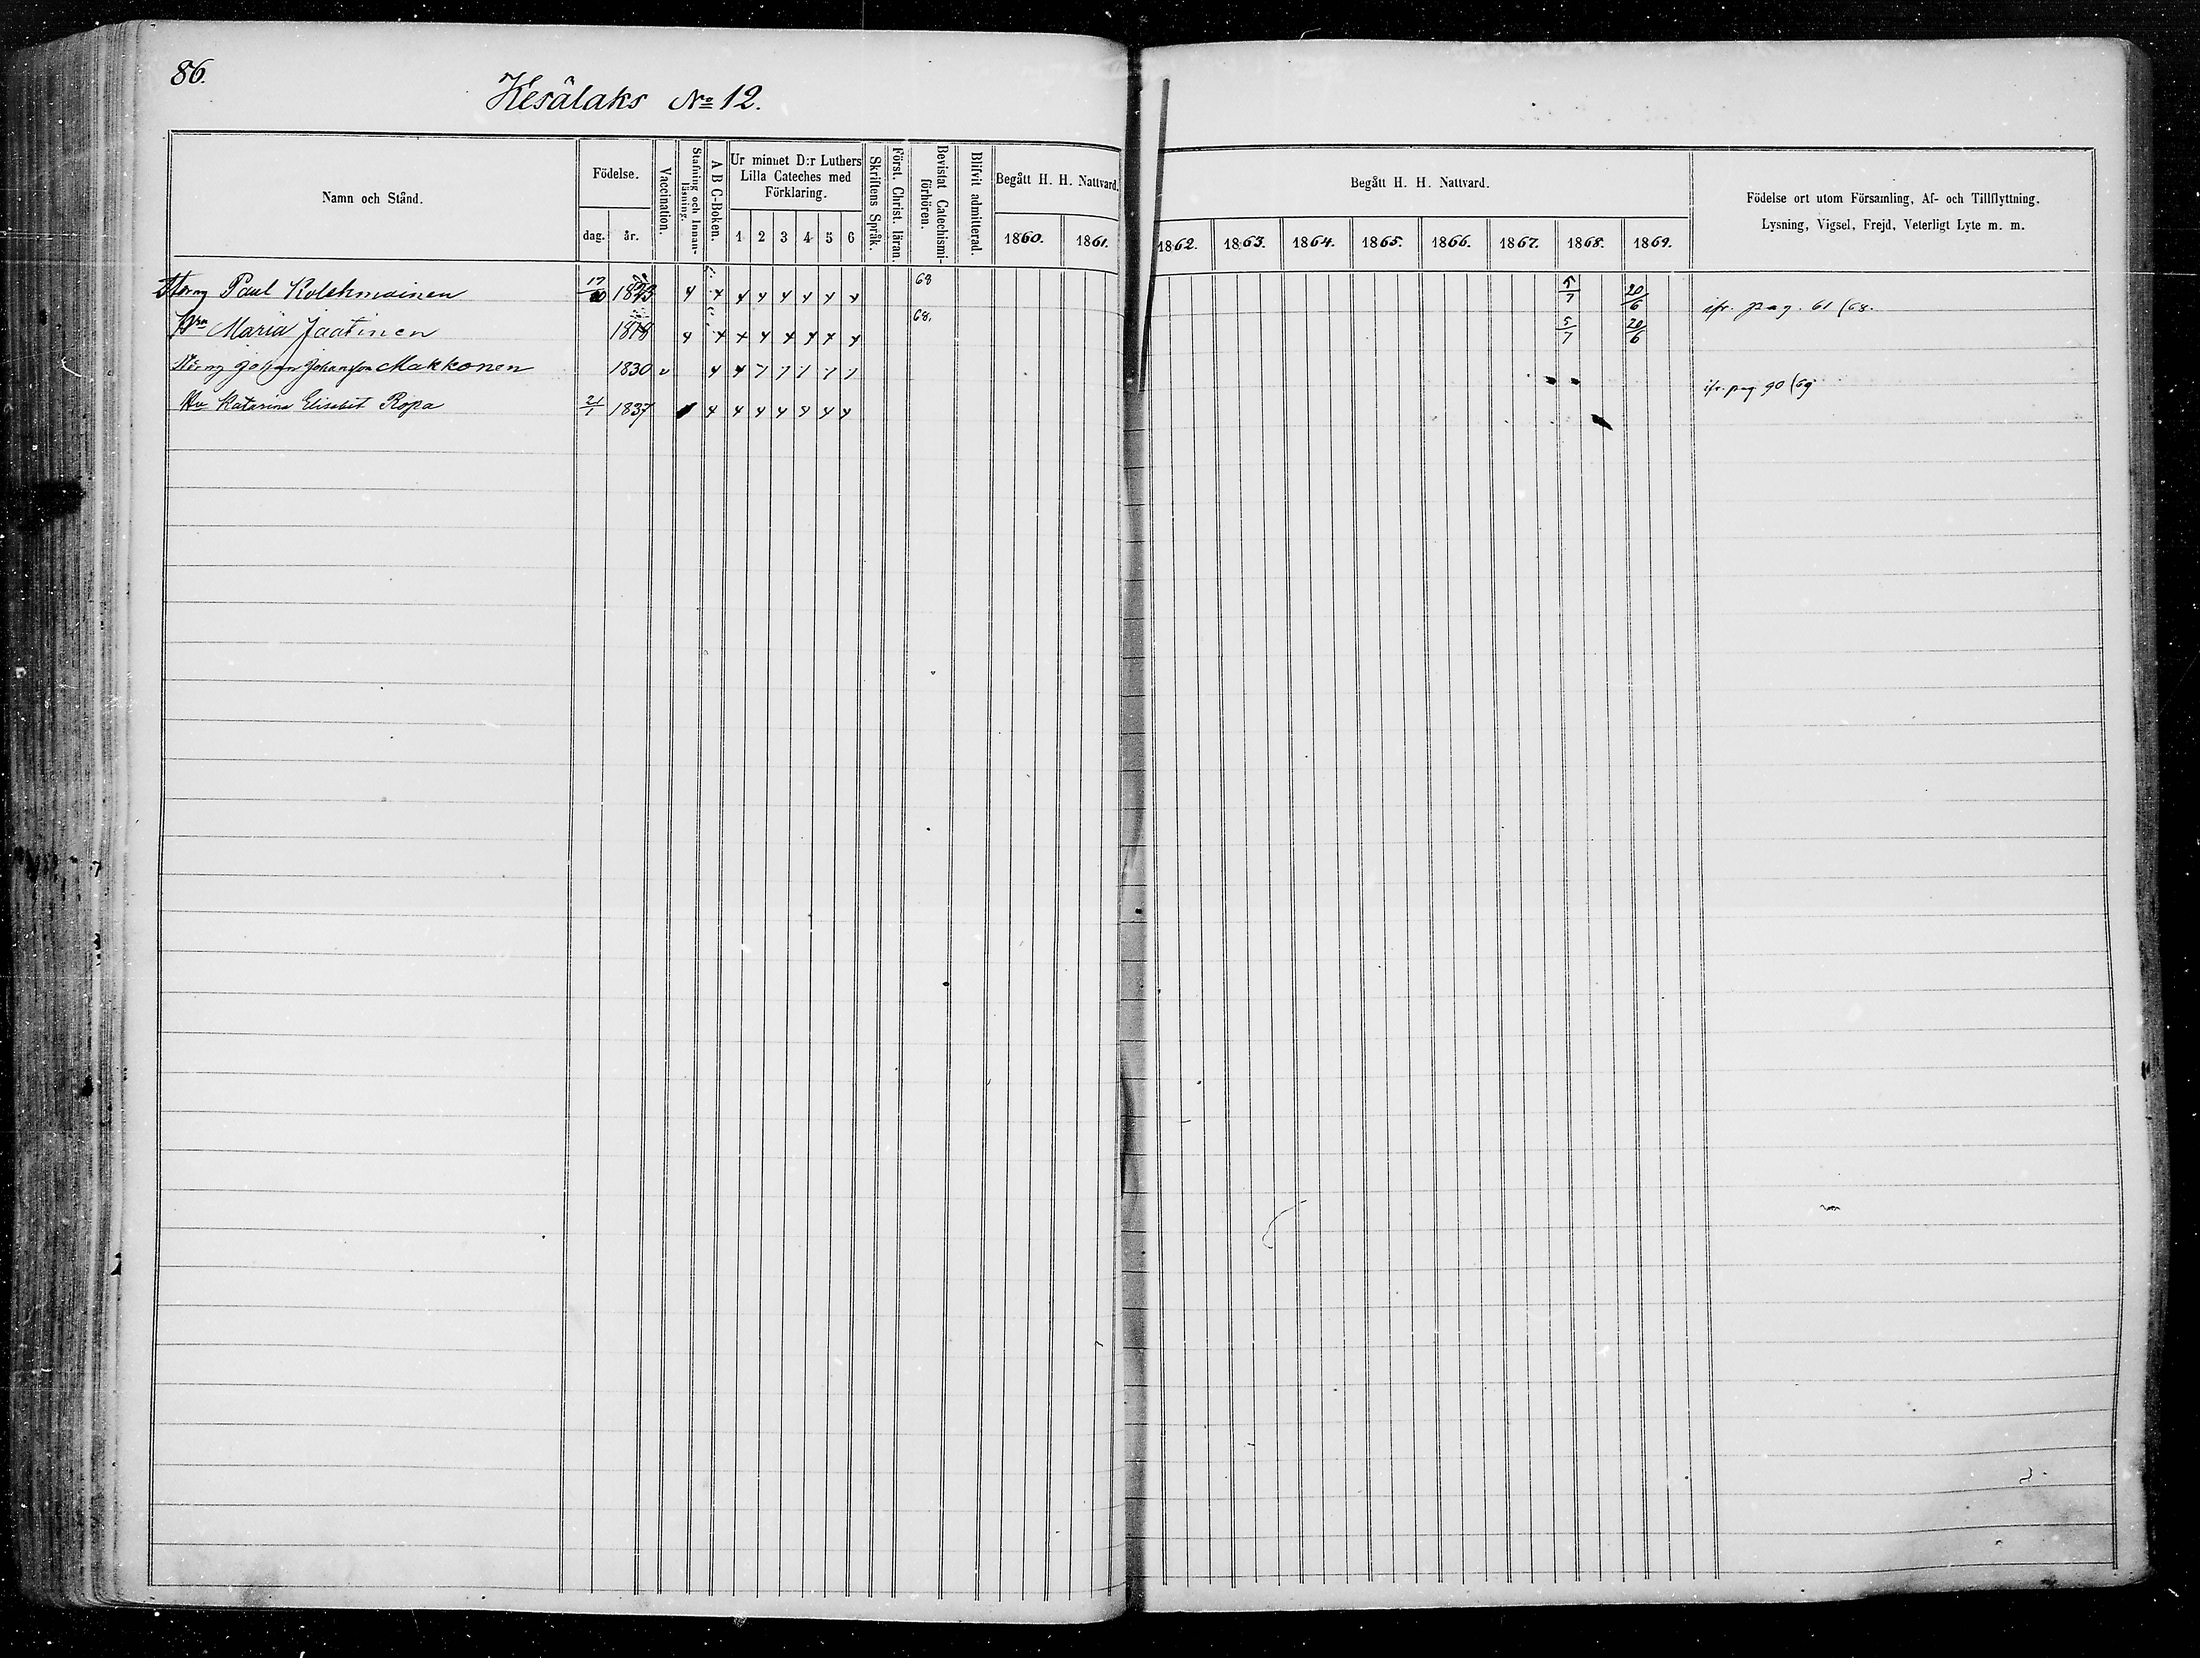 86.
Kesälaks No 12.
Namn och Stånd.
Födelse.
dag. år.
Vaccination.
Stafning och Innan-läsning.
A B C-Boken.
Ur minnet D:r Luthers
Lilla Cateches med
Förklaring.
1 2 3 4 5 6
Skriftens Språk.
Först. Christ. läran.
Bevistat Catechismi-förhören.
Blifvit admitterad.
Begått H. H. Nattvard.
1860. 1861.
Begått H. H. Nattvard.
1862. 1863. 1864. 1865. 1866. 1867. 1868. 1869.
Födelse ort utom Församling, Af- och Tillflyttning,
Lysning, Vigsel, Frejd, Veterligt Lyte m. m.
Paul Kolehmainen 1823 68 5/7 20/6 ifr. pag. 61 /68.
Hru Maria Jaatinen 1818 68. 5/7 20/6
Johan Johansson Makkonen 1830 v ifr. pag 90 /69
Hu Katarina Elisabet Ropa 21/1 1837